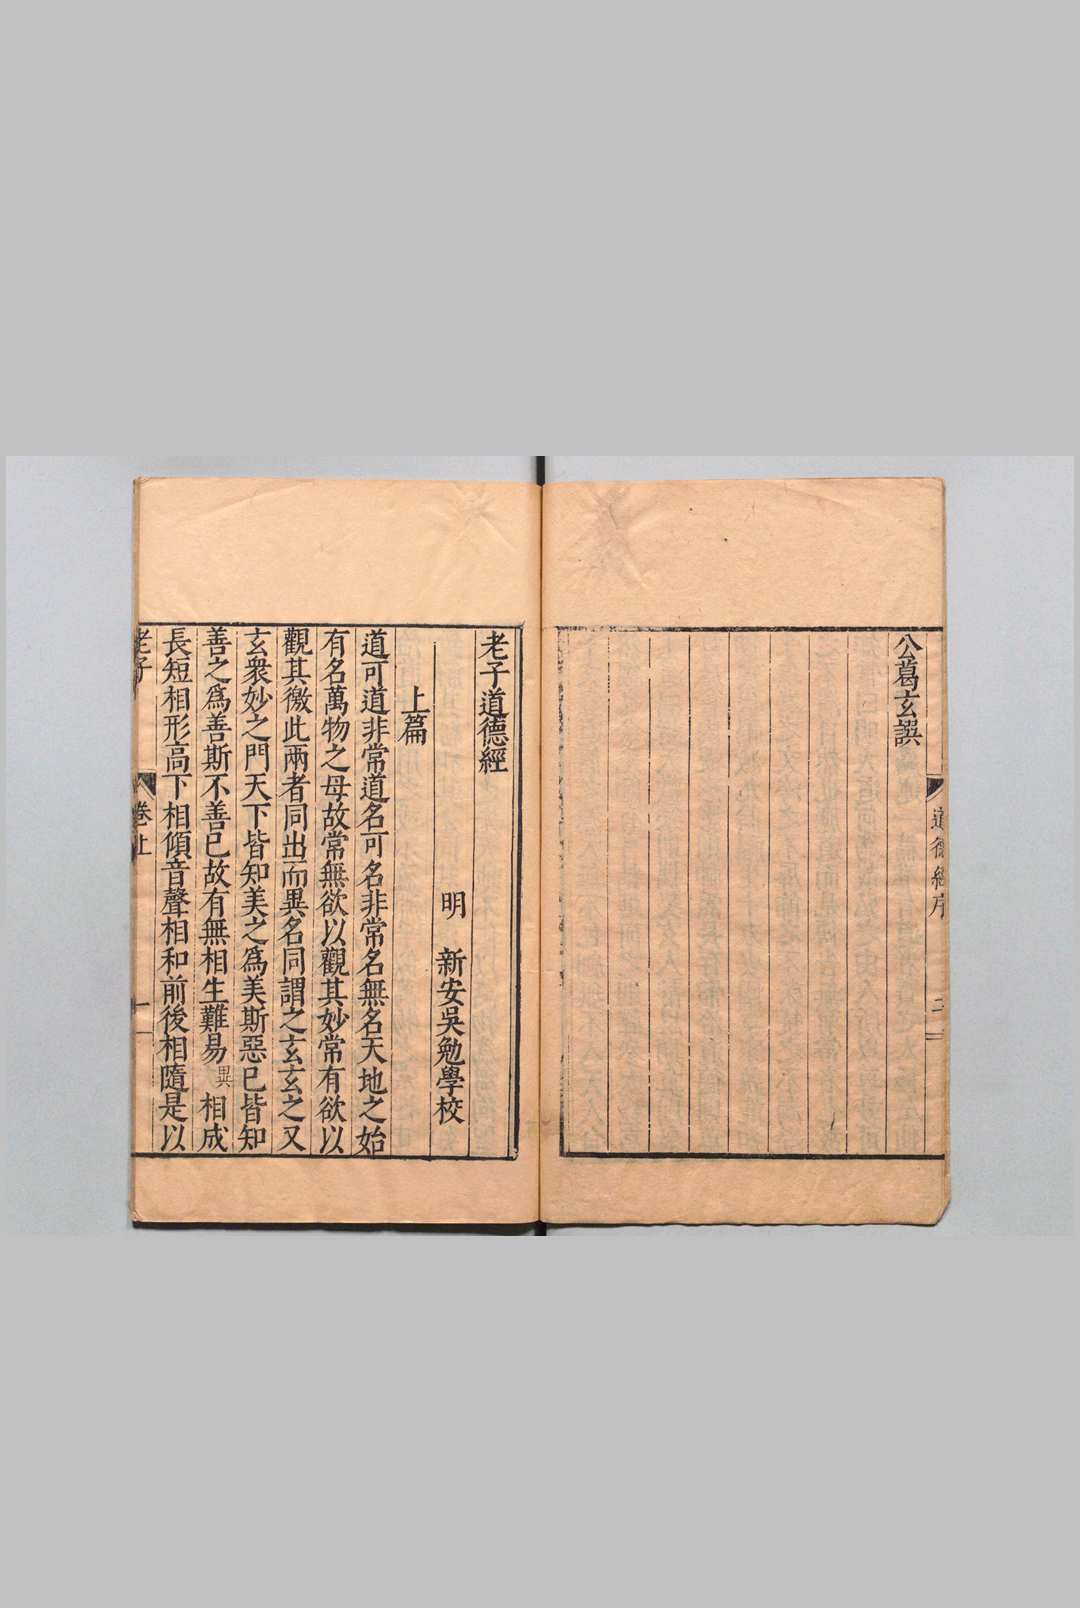 公葛玄譔
道德經序
二
老子道德經
明 新安吳勉學校
上篇
道可道非常道名可名非常名無名天地之始
有名萬物之母故常無欲以觀其妙常有欲以
觀其徼此兩者同出而異名同謂之玄玄之又
玄衆妙之門天下皆知美之爲美斯惡已皆知
善之爲善斯不善已故有無相生難易異相成
長短相形高下相傾音聲相和前後相隨是以
老子
卷上
一